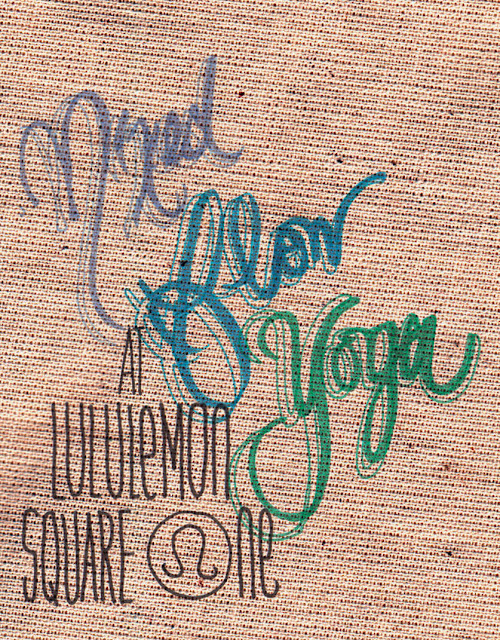 Mixed
Flow
Yoga
AT
LULULeMON
SQUARE ONe